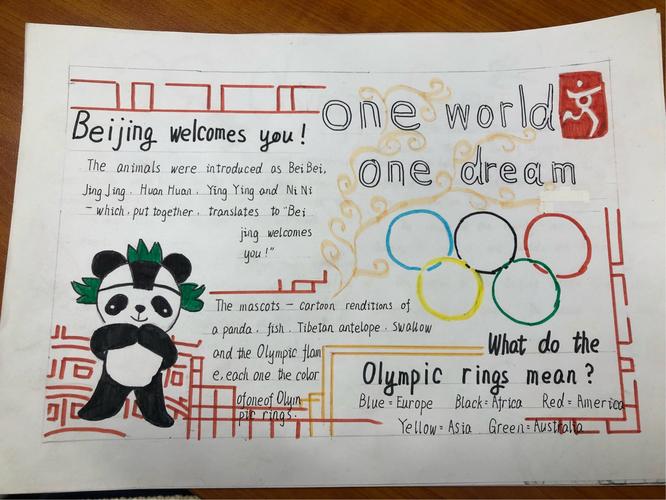 one world
one dream
Beijing welcomes you!
The animals were introduced as BeiBei,
Jing Jing. Huan Huan. Ying Ying and Ni Ni
- which, put together, translates to "Bei
jing welcomes
you!"
The mascots - cartoon renditions of
a panda. fish. Tibetan antelope. swallow
and the Olympic flam
e, each one the color
of one of Olym
pic rings.
What do the
Olympic rings mean?
Blue = Europe Black = Africa Red = America
Yellow = Asia Green = Australia